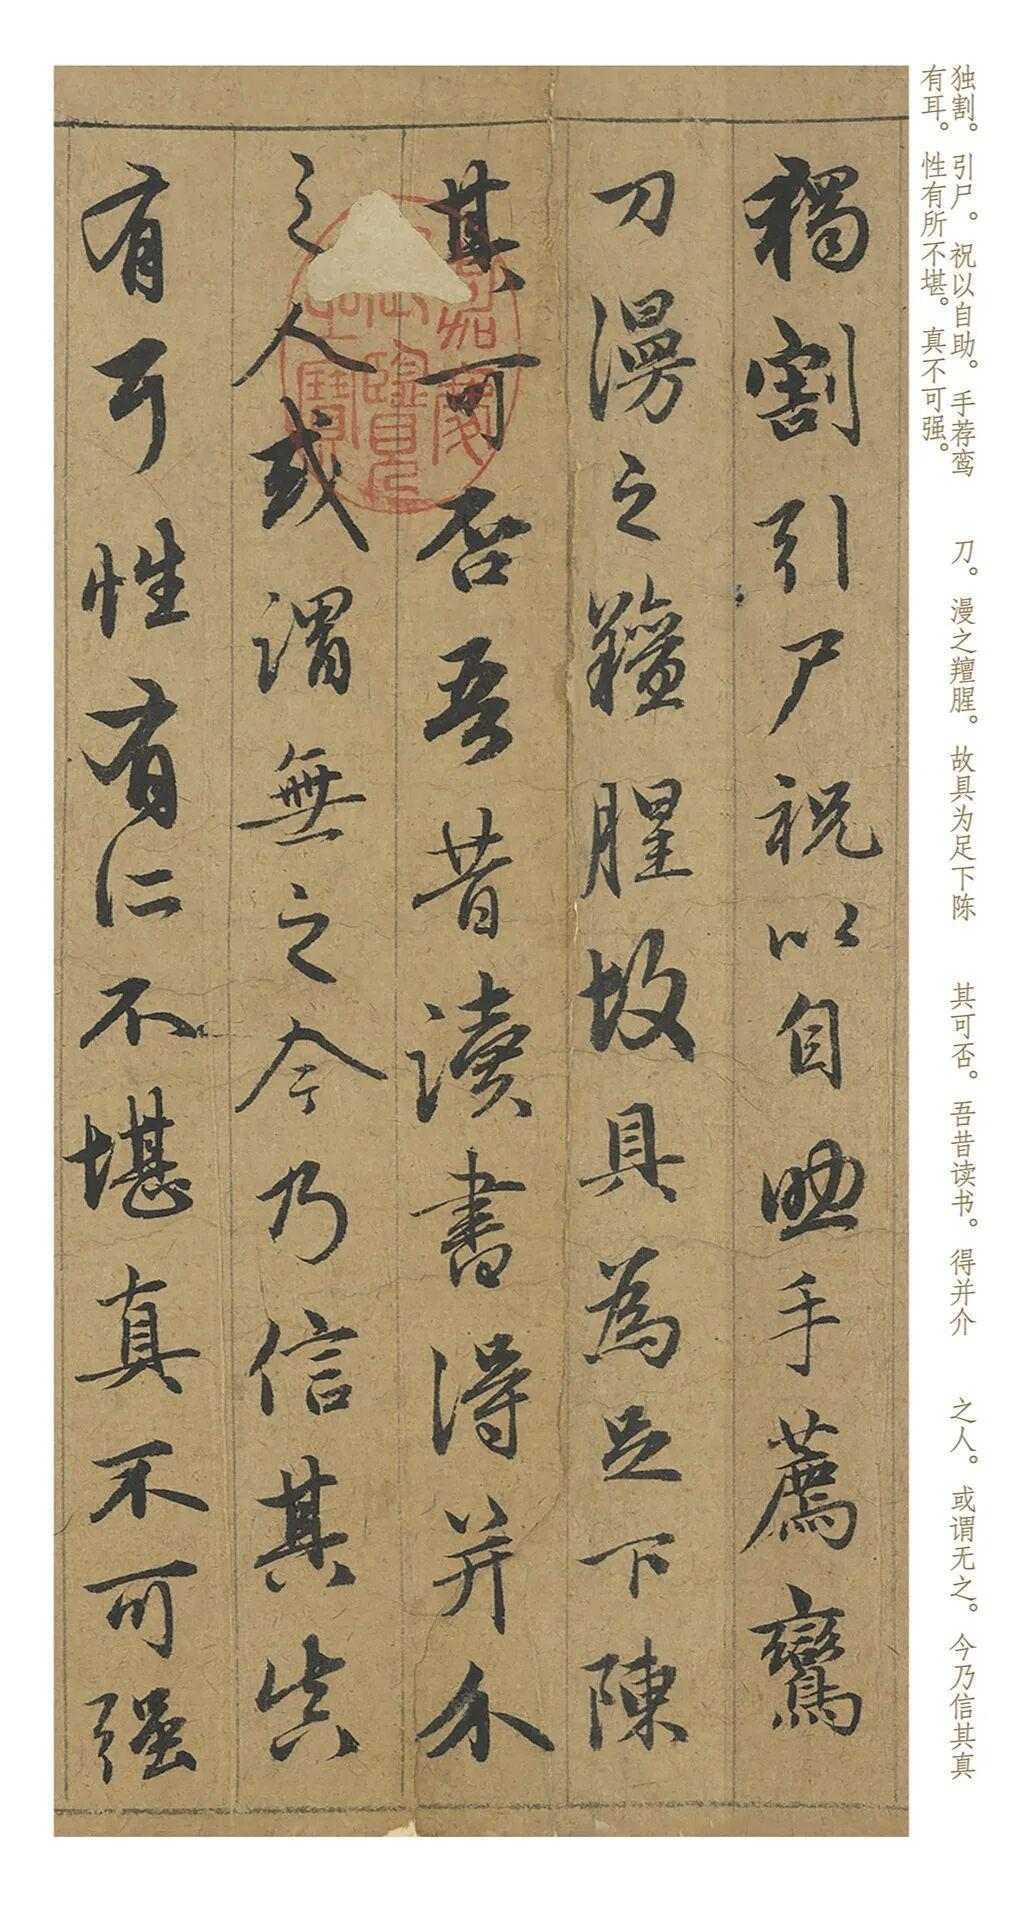 独割。引尸。祝以自助。手荐鸾 刀。漫之羶腥。故具为足下陈 其可否。吾昔读书。得并介 之人。或谓无之。今乃信其真
有耳。性有所不堪。真不可强。
獨割引尸祝以自助手薦鸞
刀漫之羶腥故具為足下陳
其可否吾昔讀書得并介
之人或謂無之今乃信其真
有耳性有所不堪真不可强
嘉慶
御覽
之寶